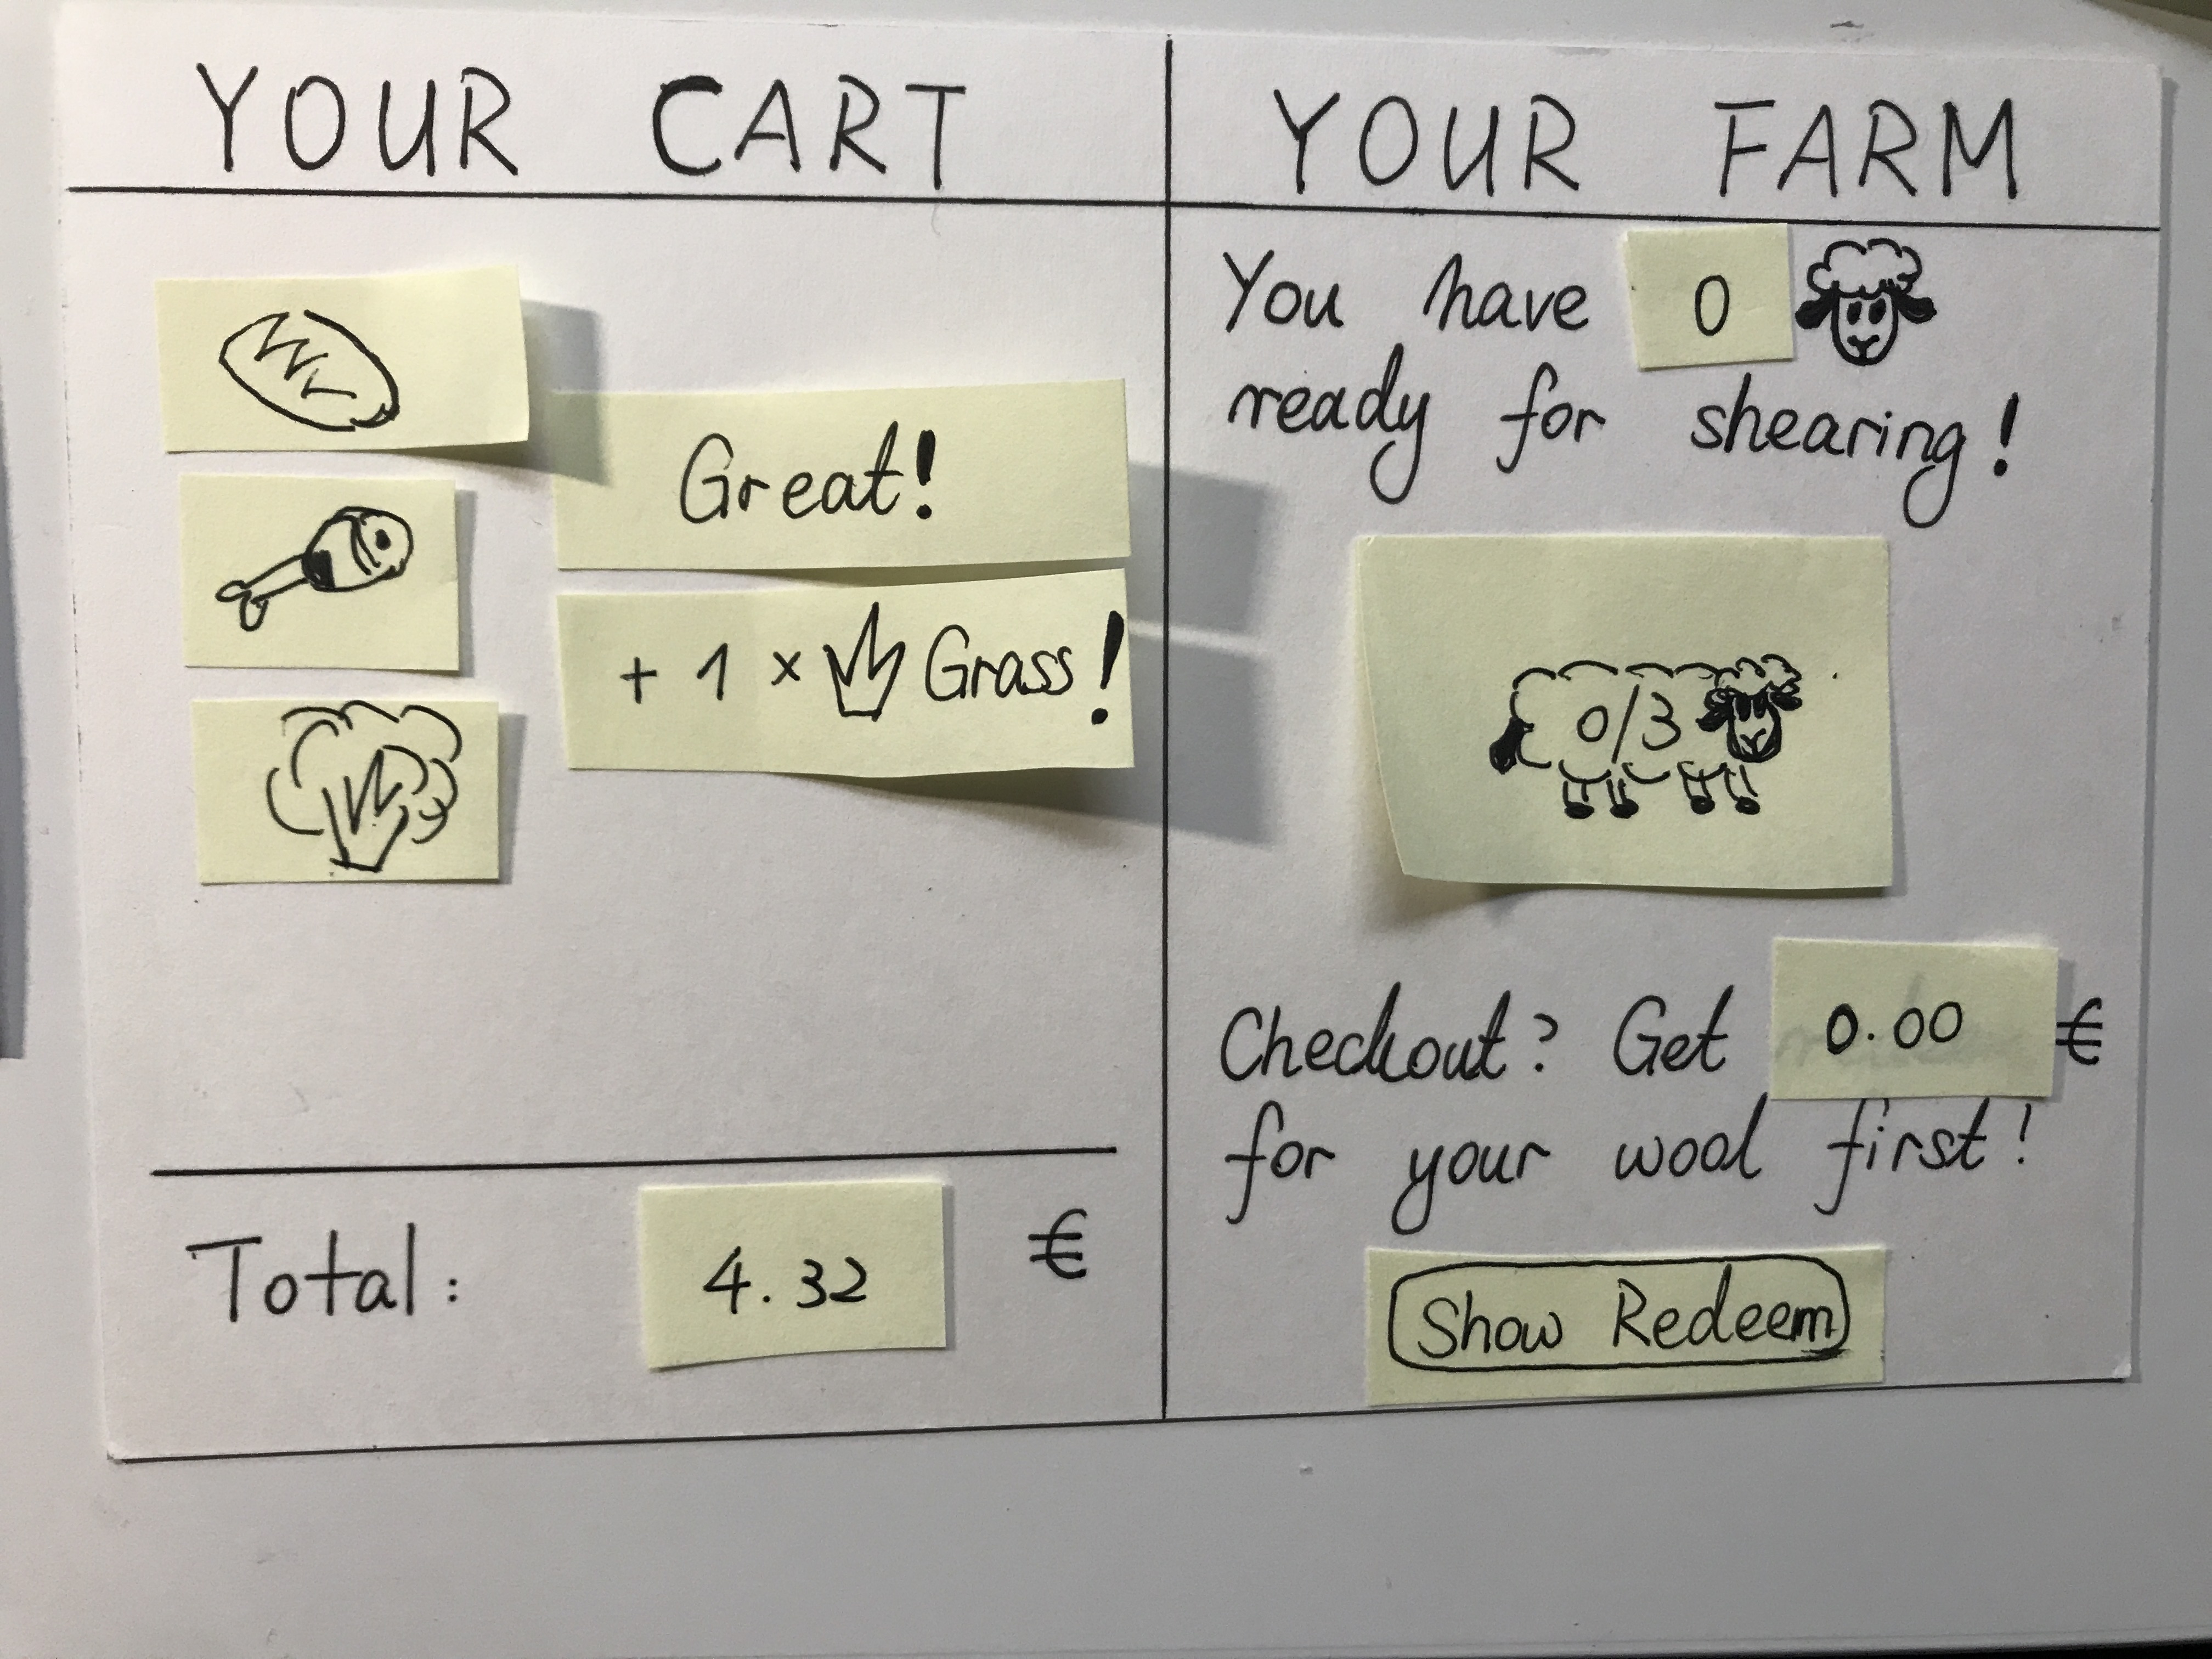 YOUR CART
Great!
+ 1 x Grass!
Total: 4.32 €
YOUR FARM
You have 0
ready for shearing!
0/3
Checkout? Get 0.00 €
for your wool first!
Show Redeem